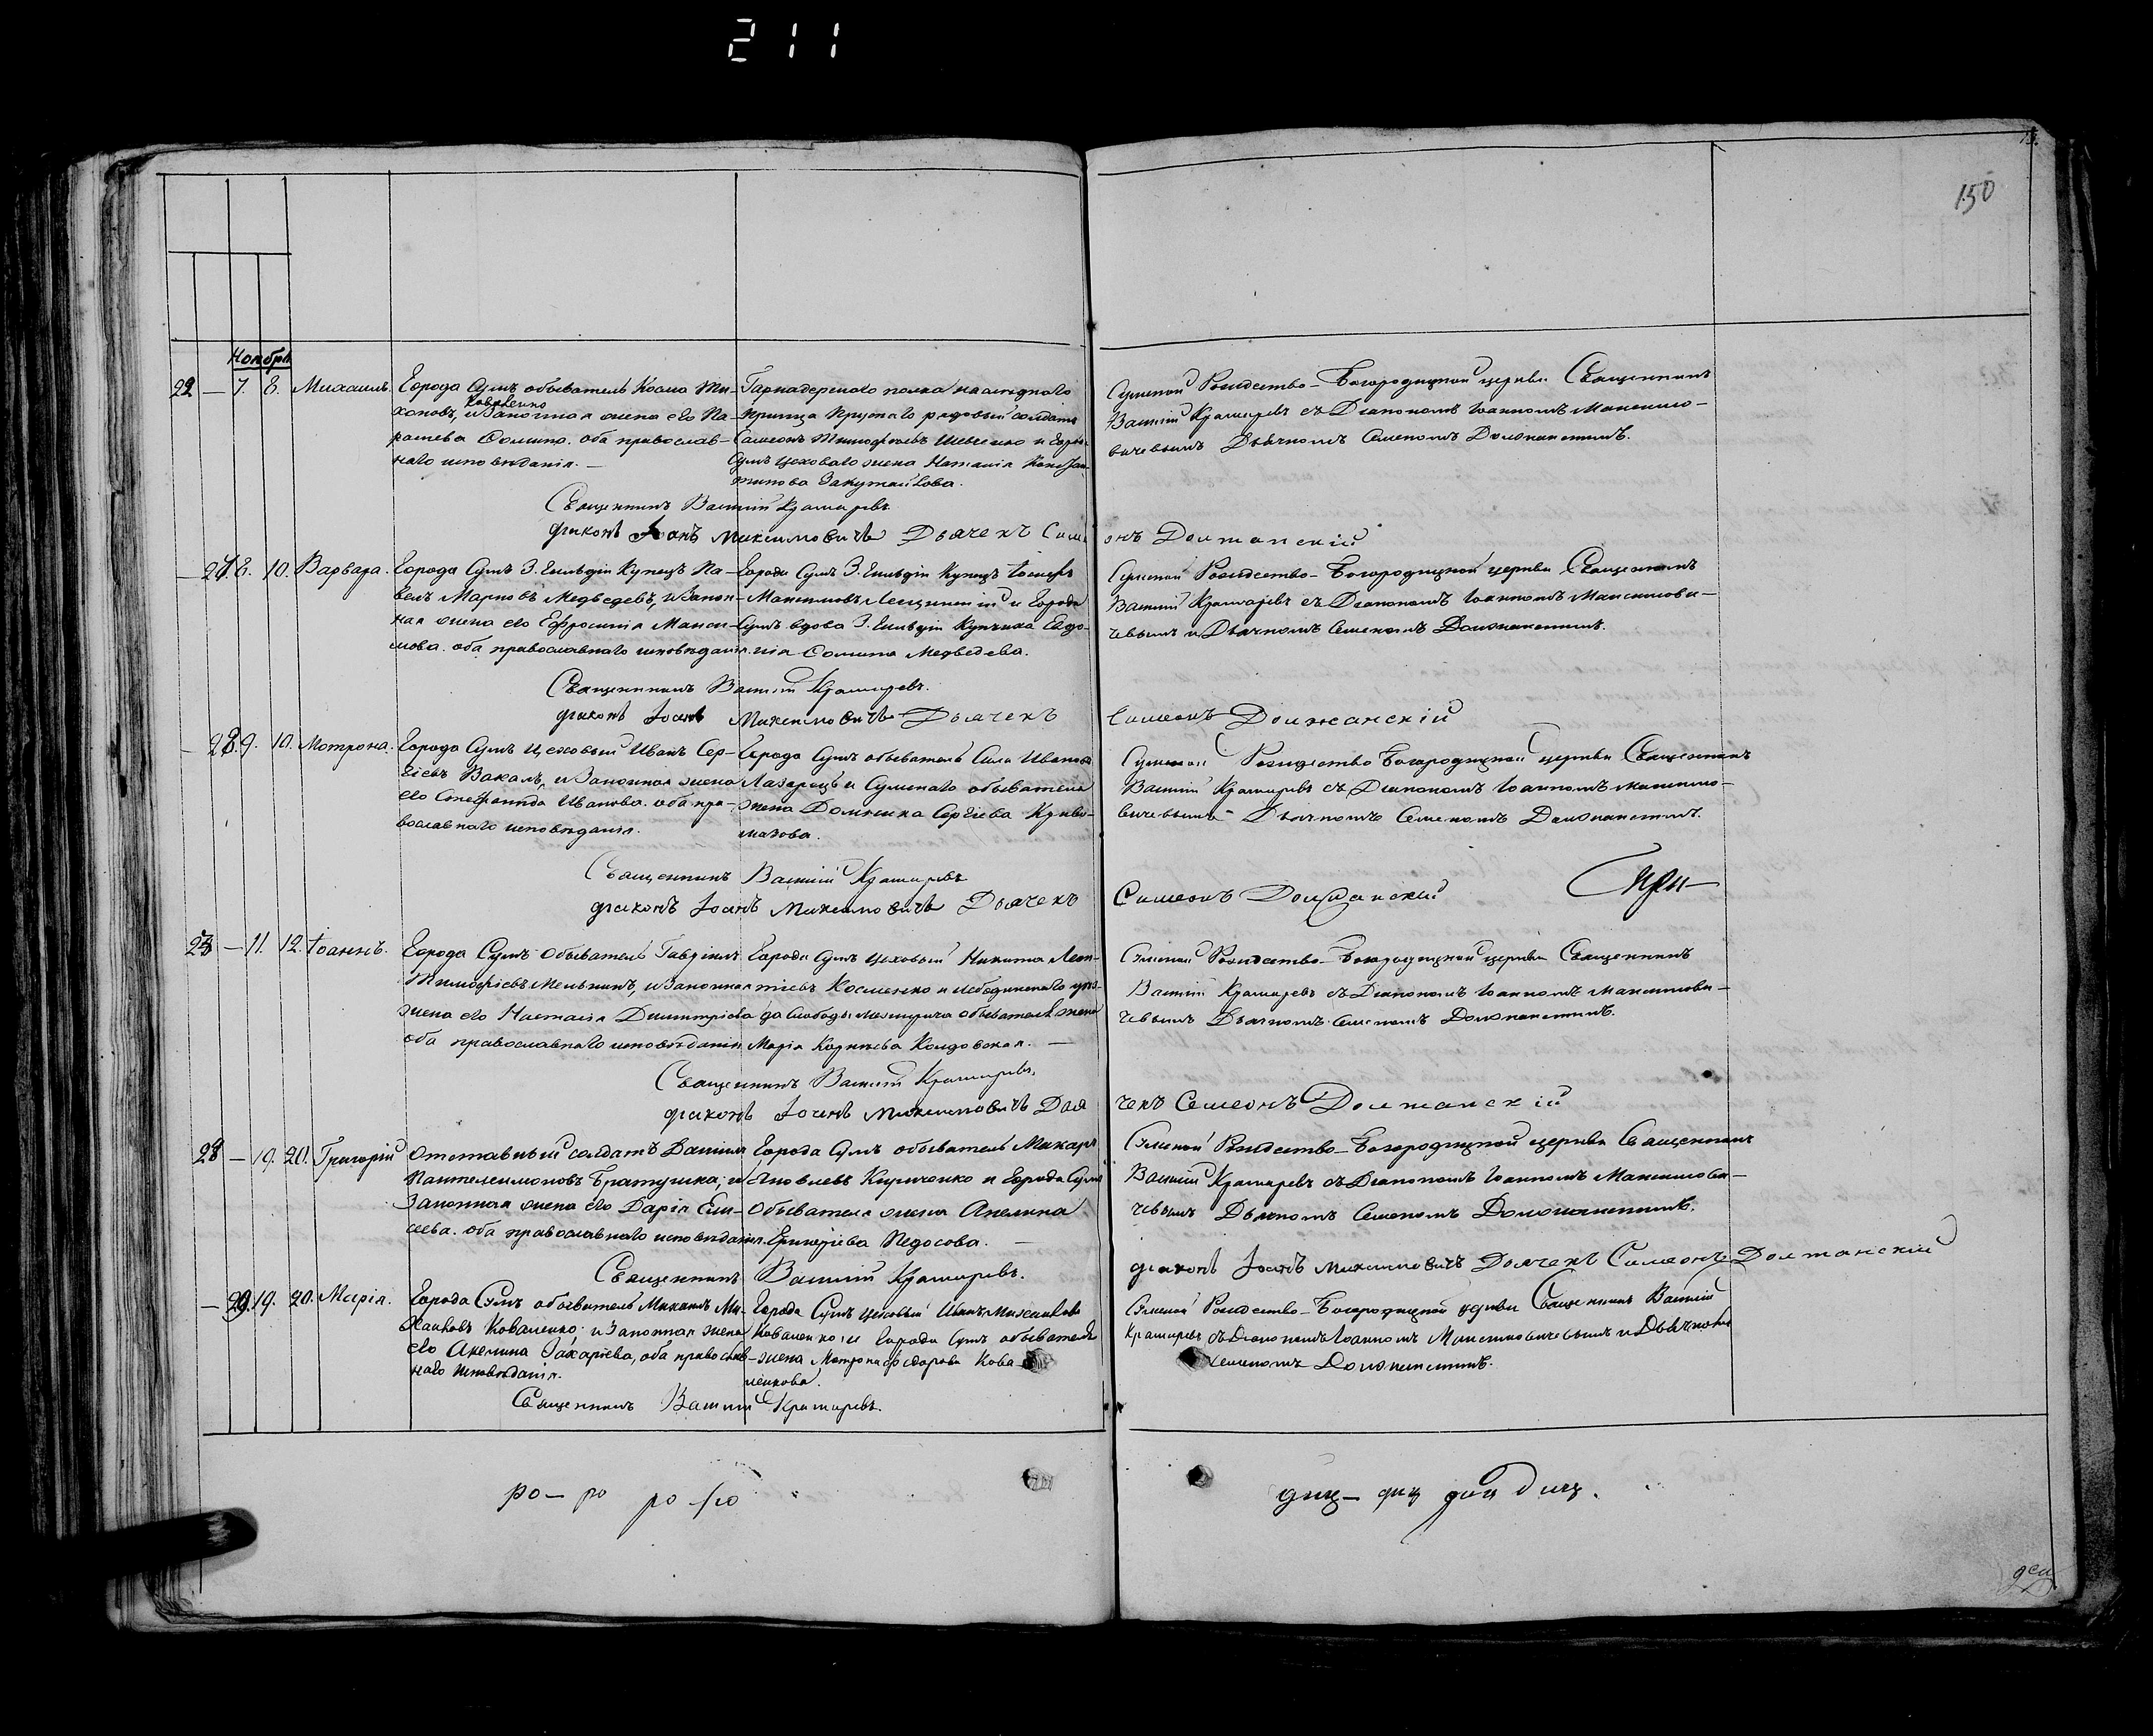 211
13.
150
Ноября
22 — 7. 8. Михаилъ.
Города Сумъ обыватель Косма Ти-
хоновъ, Коваленко и Законная жена его Па-
раскева Сомина. оба православ-
наго исповѣданія. —
полка
рядовый солдатъ
Симеонъ Тимофѣевъ Шевченко и Города
Сумъ Цеховаго жена Наталія Констан-
тинова
Сумской Рождество-Богородицкой церкви Священникъ
Василій Крамаревъ съ Діакономъ Іоанномъ Максимо-
вичевымъ Дьячкомъ Семеномъ Должанскимъ.
Священникъ Василій Крамаревъ
діаконъ Іоанъ Максимовичъ Дьячекъ Симе онъ Должанскій
— 27 8. 10. Варвара.
Города Сумъ 3. Гильдіи Купецъ Па-
велъ Марковъ Медведевъ, и Закон-
ная жена его Ефросинія Макси-
мова. оба православнаго исповѣданія.
Города Сумъ 3. Гильдіи Купецъ Іосифъ
Максимовъ Лещинскій и Города
Сумъ вдова 3. Гильдіи Купчиха Евдо-
кія Сомина Медведева.
Сумской Рождество-Богородицкой церкви Священникъ
Василій Крамаревъ съ Діакономъ Іоанномъ Максимови-
чевымъ и Дьячкомъ Семеномъ Должанскимъ.
Священникъ Василій Крамаревъ.
діаконъ Іоанъ Максимовичъ Дьячекъ Симеонъ Должанскій
— 28 9. 10. Мотрона.
Города Сумъ Цеховый Иванъ Сер-
гіевъ Вакалъ, и Законная жена
его Стефанида Иванова. оба пра-
вославнаго исповѣданія.
Города Сумъ обыватель Сила Ивановъ
Лазарецъ и Сумскаго обывателя
жена Домника Сергіева Криво-
мазова.
Сумской Рождество Богородицкой церкви Священникъ
Василій Крамаревъ съ Діакономъ Іоанномъ Максимо-
вичевымъ Дьячкомъ Семеномъ Должанскимъ.
Священникъ Василій Крамаревъ
діаконъ Іоанъ Максимовичъ Дьячекъ Симеонъ Должанскій
23 — 11. 12. Іоаннъ.
Города Сумъ Обыватель Гавріилъ
Тимофѣевъ Мельникъ, и Законная
жена его Настасія Димитріева
оба православнаго исповѣданія
Города Сумъ Цеховый Никита Леон-
тіевъ Косменко и Лебединскаго уѣз-
да Слободы Межирича обывателя жена
Марія Корнѣева Колдовская. —
Сумской Рождество-Богородицкой церкви Священникъ
Василій Крамаревъ съ Діакономъ Іоанномъ Максимови-
чевымъ Дьячкомъ Семеномъ Должанскимъ.
Священникъ Василій Крамаревъ,
діаконъ Іоанъ Максимовичъ Дья чекъ Симеонъ Должанскій
28 — 19. 20. Григорій
Отставный солдатъ Даніилъ
Пантелеимоновъ Братушка, и
Законная жена его Дарія Ели-
сѣева. оба православнаго исповѣданія.
Города Сумъ обыватель Макаръ
Яковлевъ Кириченко и Города Сумъ
Обывателя жена Акелина
Григоріева Педосова. —
Сумской Рождество-Богородицкой церкви Священникъ
Василій Крамаревъ съ Діакономъ Іоанномъ Максимови-
чевымъ Дьячкомъ Семеномъ Должанскимъ.
Священникъ Василій Крамаревъ.
діаконъ Іоанъ Максимовичъ Дьячекъ Симеонъ Должанскій
— 29. 19. 20. Марія.
Города Сумъ обыватель Михаилъ Ми-
хайловъ Коваленко, и Законная жена
его Акелина Захаріева, оба православ-
наго исповѣданія.
Города Сумъ Цеховый Иванъ Михайловъ
Коваленко, и Города Сумъ обывателя
жена Мотрона Федорова Кова-
ленкова.
Сумской Рождество-Богородицкой церкви Священникъ Василій
Крамаревъ съ Діакономъ Іоанномъ Максимовичевымъ и Дьячкомъ
Семеномъ Должанскимъ.
Священникъ Василій Крамаревъ.
ро— ро ро ро
диц— диц